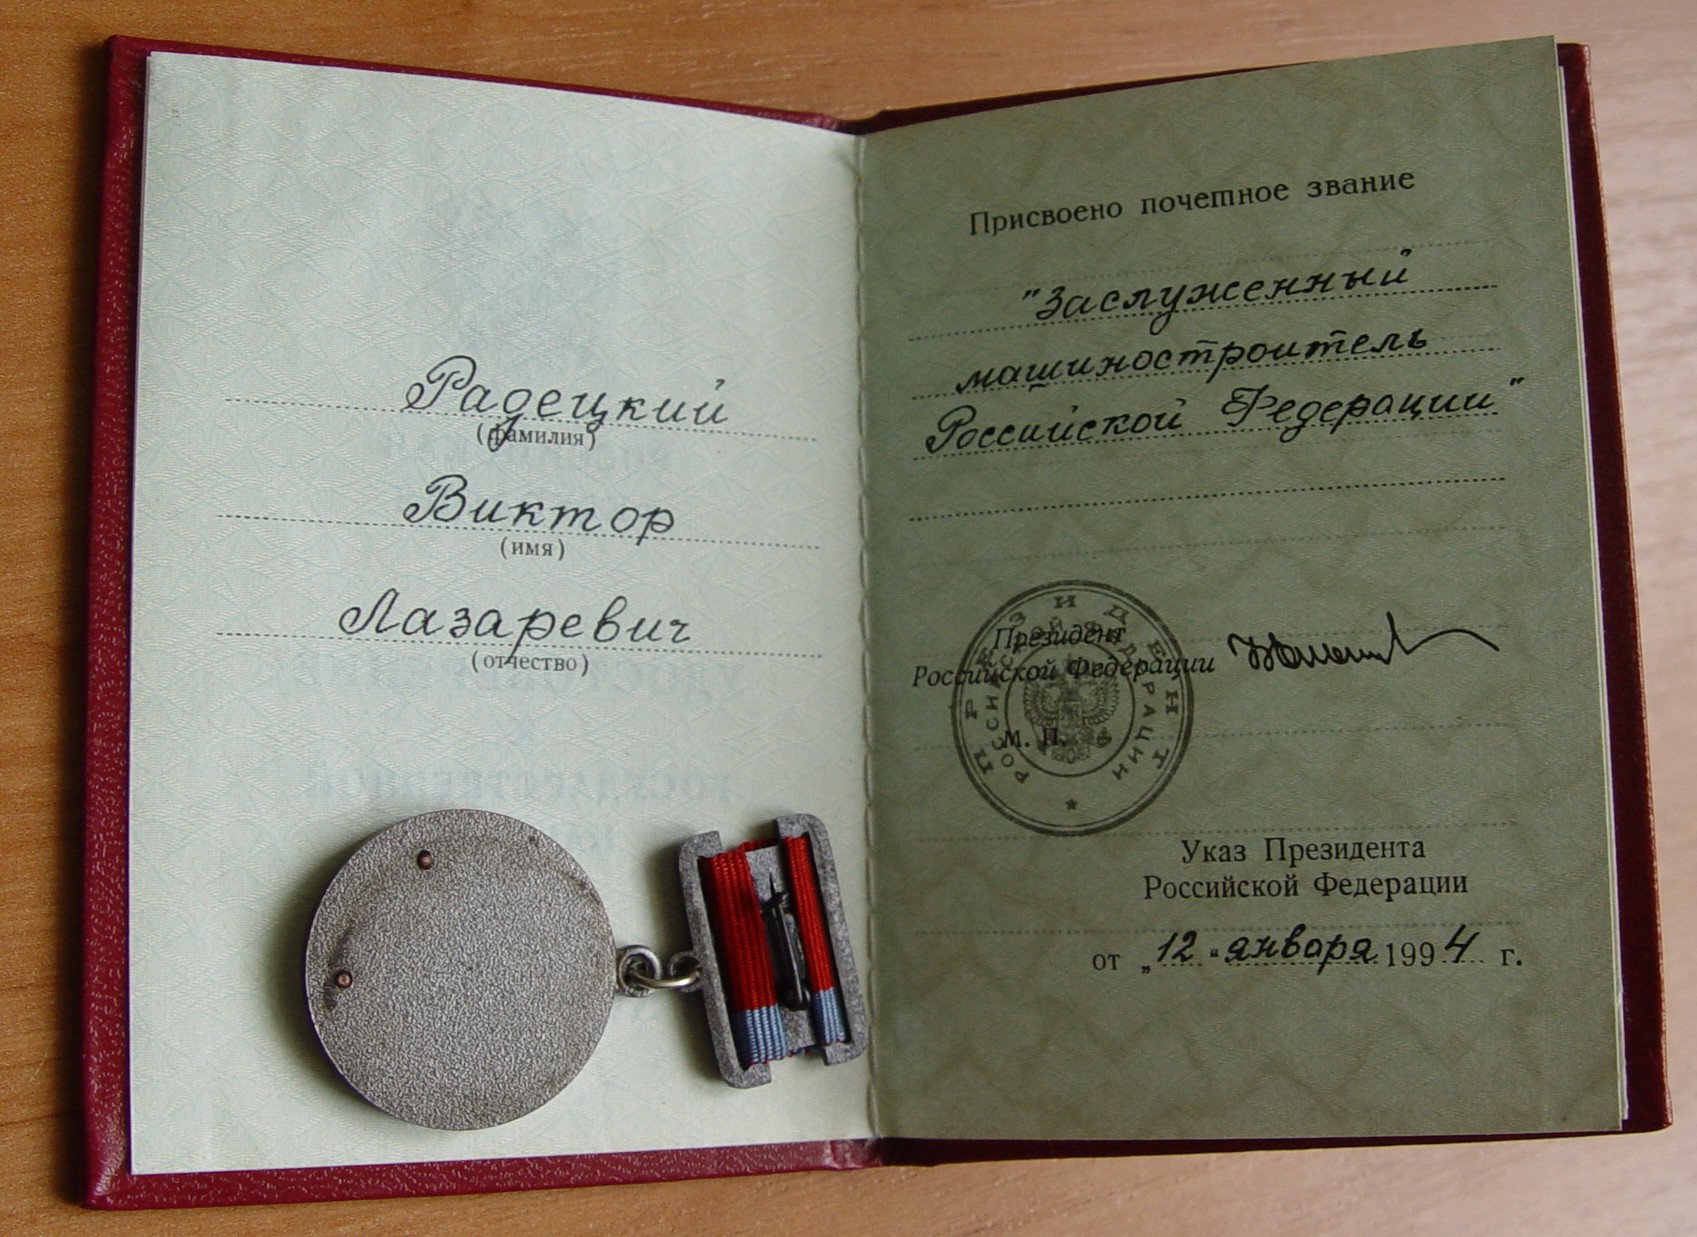 Радецкий
(фамилия)
Виктор
(имя)
Лазаревич
(отчество)
Присвоено почетное звание
"Заслуженный
машиностроитель
Российской Федерации"
Президент
Российской Федерации
М. П.
ПРЕЗИДЕНТ
РОССИЙСКОЙ ФЕДЕРАЦИИ
Указ Президента
Российской Федерации
от „12“ января 1994 г.